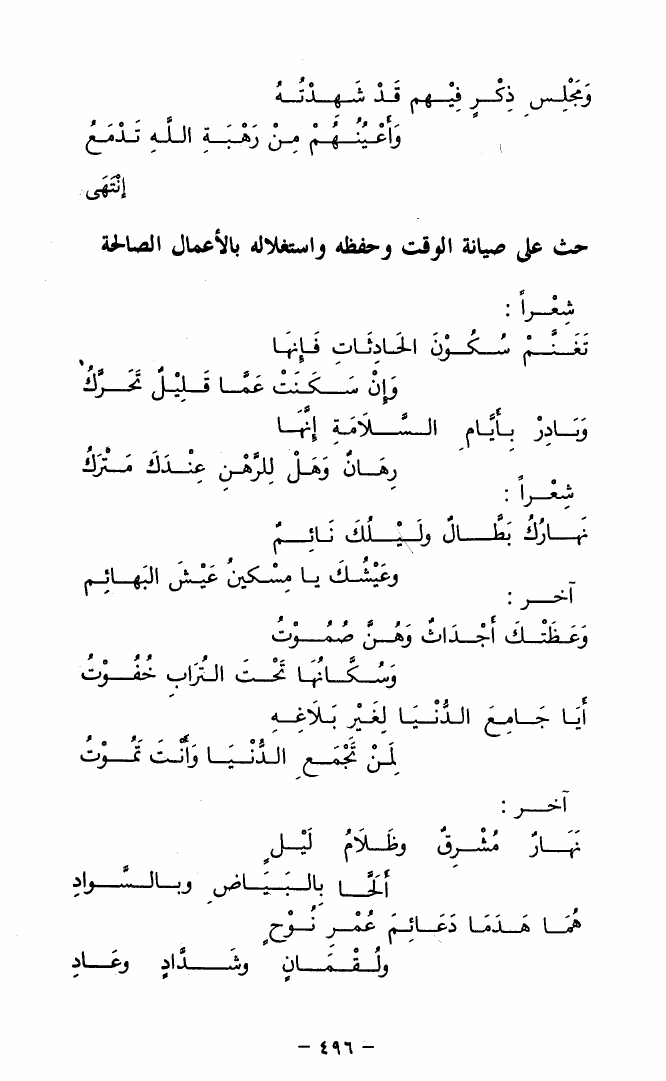 وَمَجْلِسِ ذِكْرٍ فِيْهِمِ قَدْ شَهِدْتُهُ
وَأَعْيُنُهُمْ مِنْ رَهْبَةِ اللَّهِ تَدْمَعُ
إِنْتَهَى
حث على صيانة الوقت وحفظه واستغلاله بالأعمال الصالحة
شِعْراً :
تَغَنَّمْ سُكُوْنَ الحَادِثَاتِ فَإِنَّهَا
وَإِنْ سَكَنَتْ عَمَّا قَلِيْلٌ تَحَرَّكُ
وَبَادِرْ بِأَيَّامِ السَّلَامَةِ إِنَّهَا
رِهَانٌ وَهَلْ لِلرَّهْنِ عِنْدَكَ مَتْرَكُ
شِعْراً :
نَهارُكَ بَطَّالٌ ولَيْلُكَ نَائِمٌ
وعَيْشُكَ يا مِسْكينُ عَيْشُ البَهائِمِ
آخر :
وَعَظَتْكَ أَجْدَاثٌ وَهُنَّ صُمُوْتُ
وَسُكَّانُهَا تَحْتَ التُرَابِ خُفُوْتُ
أَيَا جَامِعَ الدُّنْيَا لِغَيْرِ بَلَاغِهِ
لِمَنْ تَجْمَعِ الدُّنْيَا وَأَنْتَ تَمُوْتُ
آخر :
نَهَارٌ مُشْرِقٌ وظَلَامُ لَيْلٍ
أَلَحَّا بِالبَيَاضِ وبالسَّوادِ
هُمَا هَدَمَا دَعَائِمَ عُمْرِ نُوْحٍ
ولُقْمَانٍ وشَدَّادٍ وعَادِ
- ٤٩٦ -